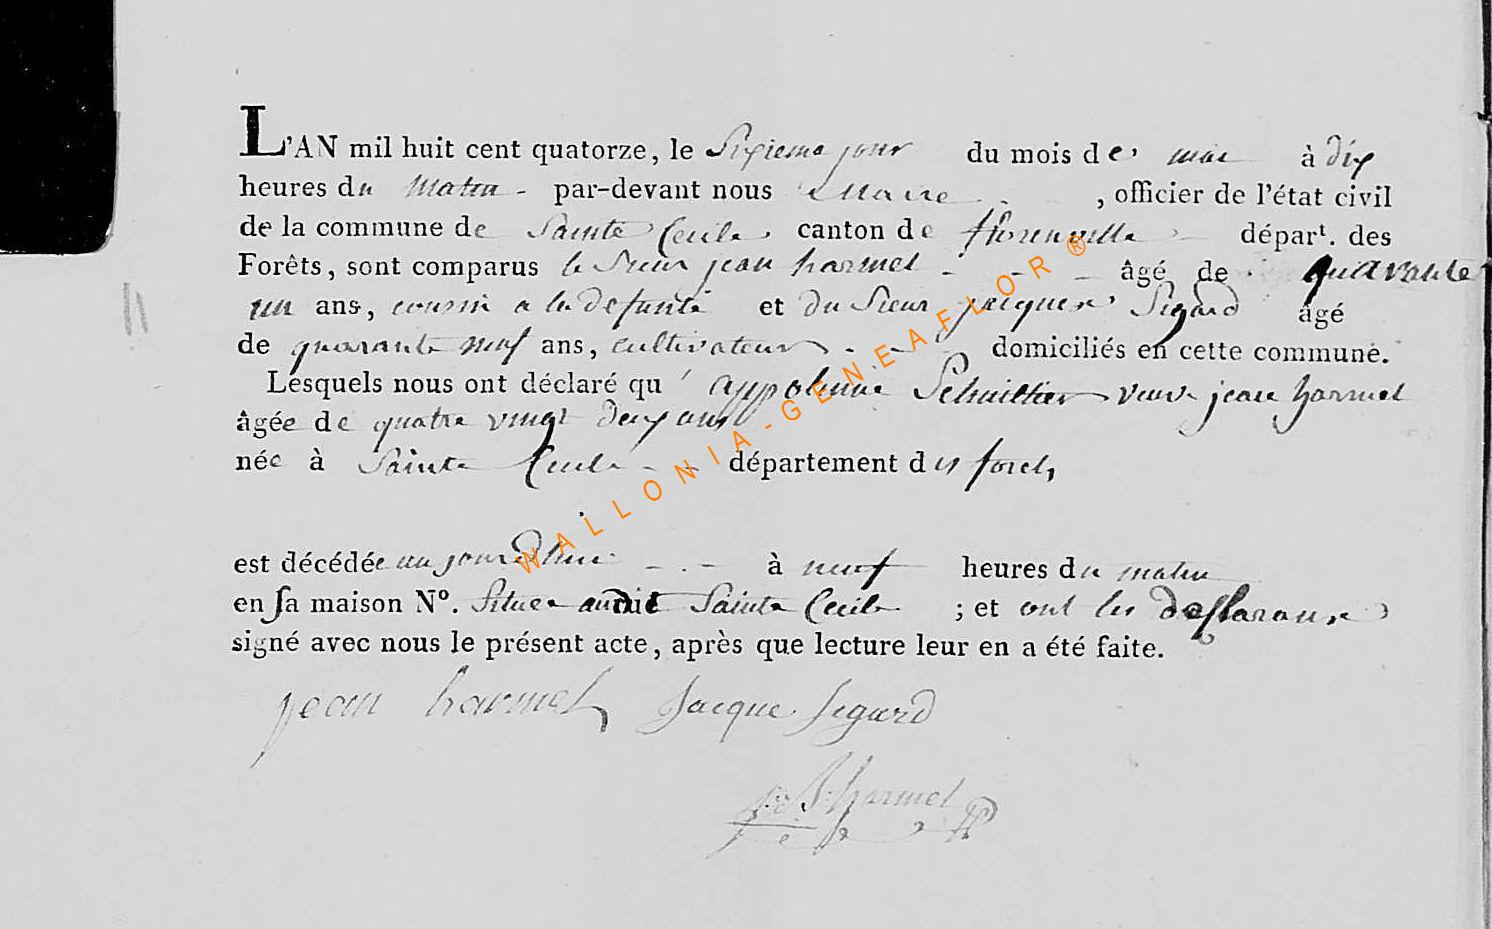 L'AN mil huit cent quatorze, le Sixieme jour du mois de mai à dix
heures du Matin - par-devant nous Maire , officier de l'état civil
de la commune de Sainte Cecile canton de florenville départ. des
Forêts, sont comparus le Sieur jean harmel - - - âgé de quarante
un ans, cousin a la defunte et du Sieur jacques Sigard âgé
de quarante neuf ans, cultivateurs - - domiciliés en cette commune.
Lesquels nous ont déclaré qu' appoline veuve jean harmel
âgée de quatre vingt deux ans
née à Sainte Cecile - - département des forets
est décédée au jourd'hui - - - à neuf heures du matin
en sa maison Nº. Situee audit Sainte Cecile ; et ont les
signé avec nous le présent acte, après que lecture leur en a été faite.
jean harmel Jacque Sigard
harmel
11
WALLONIA-GENEAFLOR®